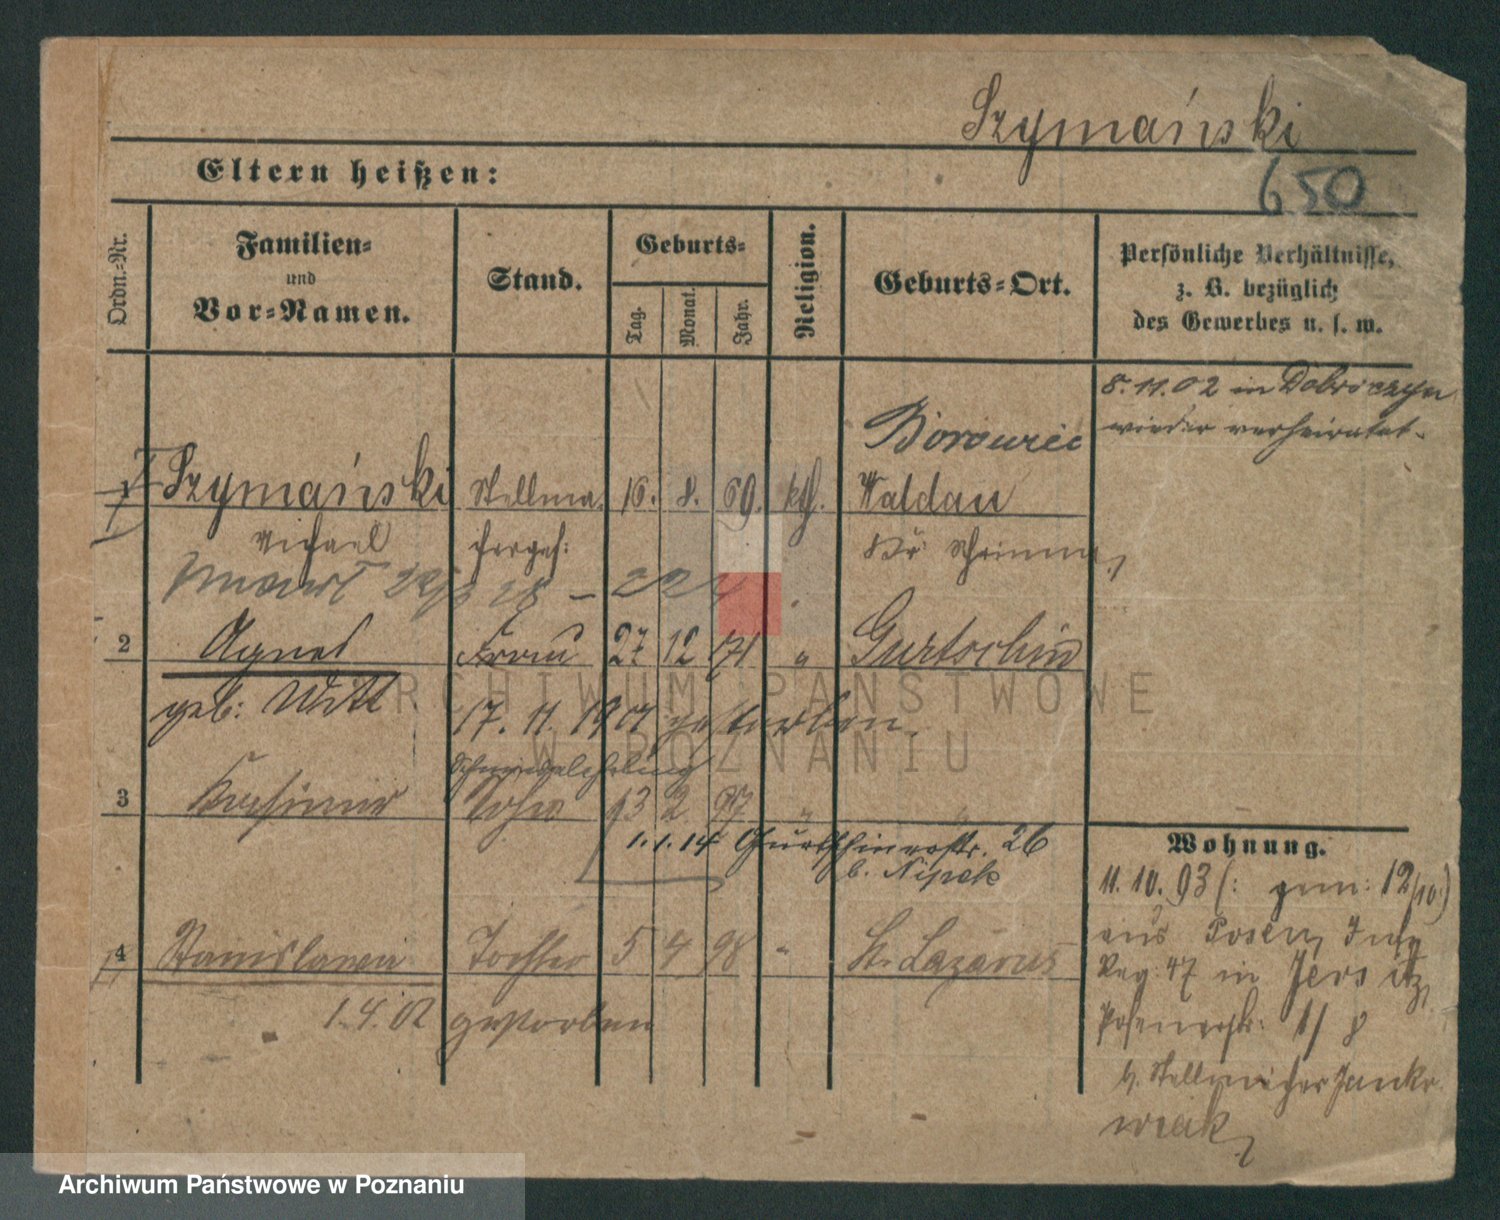 Szymański
650
Eltern heißen:
Ordn.-Nr.
Familien-
und
Vor-Namen.
Stand.
Geburts-
Tag.
Monat.
Jahr.
Religion.
Geburts-Ort.
Persönliche Verhältnisse,
z. B. bezüglich
des Gewerbes u. s. w.
8.11.02 in Dobroczyn
wieder verheiratet.
Borowiec
1 Szymański Stellma 16. 8. 60. kth. Waldau
Michael chergeh: Kr. Schrimm
2 Agnes Frau 27 12 71 " Gurtschin
geb: Witt 17. 11. 1901 gestorben.
ARCHIWUM PAŃSTWOWE
W POZNANIU
Schmiedelehrling
3 Kasimir Sohn 13 2 97 " "
1.1.14 Gurtschinerstr. 26
b. Nipek
4 Stanislawa Tochter 5 4 98 " St. Lazarus
1.4.02 gestorben
Wohnung.
11.10.93 (: gem: 12/10.)
aus Posen, Inf.
Reg. 47 in Jersitz,
Posenerstr: 8
b. Stellmacher Jankо
wiak
Archiwum Państwowe w Poznaniu